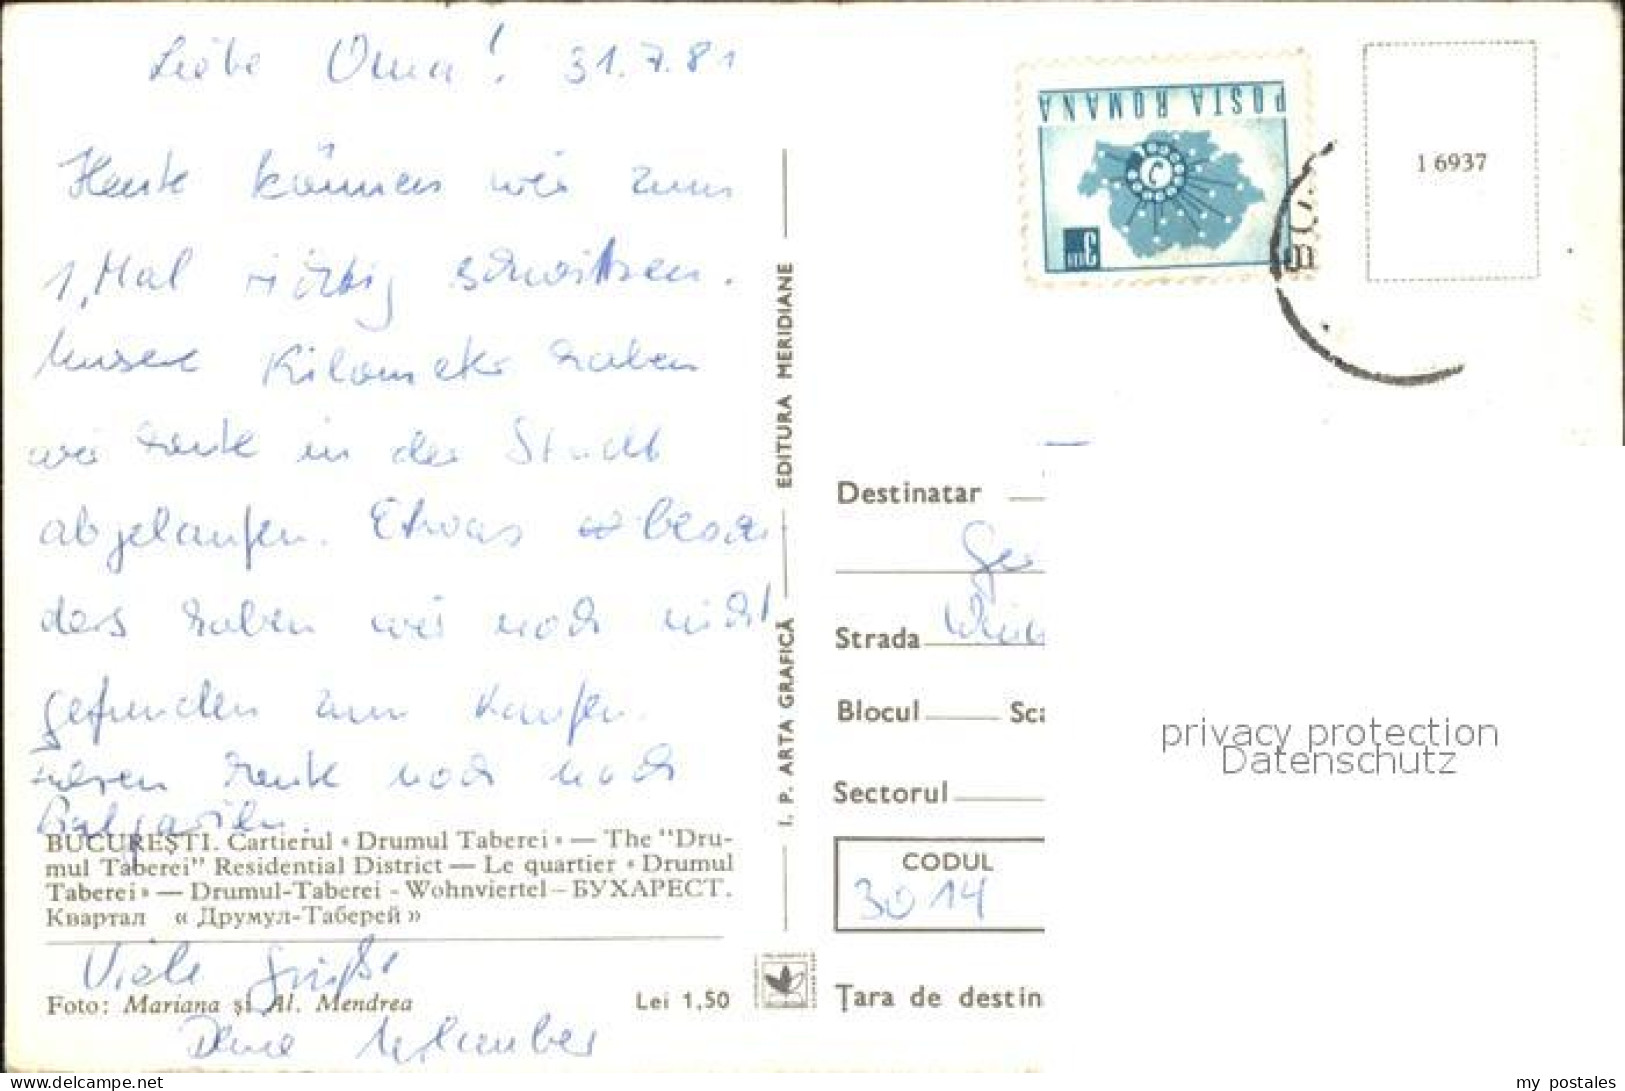 Liebe Oma! 31.7.81
Heute können wir zum
1. Mal richtig schwitzen.
Unsere Kilometer haben
wir heute in der Stadt
abgelaufen. Etwas beson
ders haben wir noch nicht
gefunden zum kaufen.
heute noch nach
Bulgarien.
BUCUREŞTI. Cartierul « Drumul Taberei » — The "Dru-
mul Taberei" Residential District — Le quartier « Drumul
Taberei » — Drumul-Taberei - Wohnviertel – БУХАРЕСТ.
Квартал « Друмул-Таберей »
Viele Grüße
Foto: Mariana şi Al. Mendrea
Lei 1,50
Deine Urlauber
I. P. ARTA GRAFICĂ
EDITURA MERIDIANE
POSTA ROMANA
3 LEI
1 6937
Destinatar
Ge
Strada
Blocul
Sca
Sectorul
CODUL
3014
Ţara de destin
privacy protection
Datenschutz
Delcampe.net
my_postales